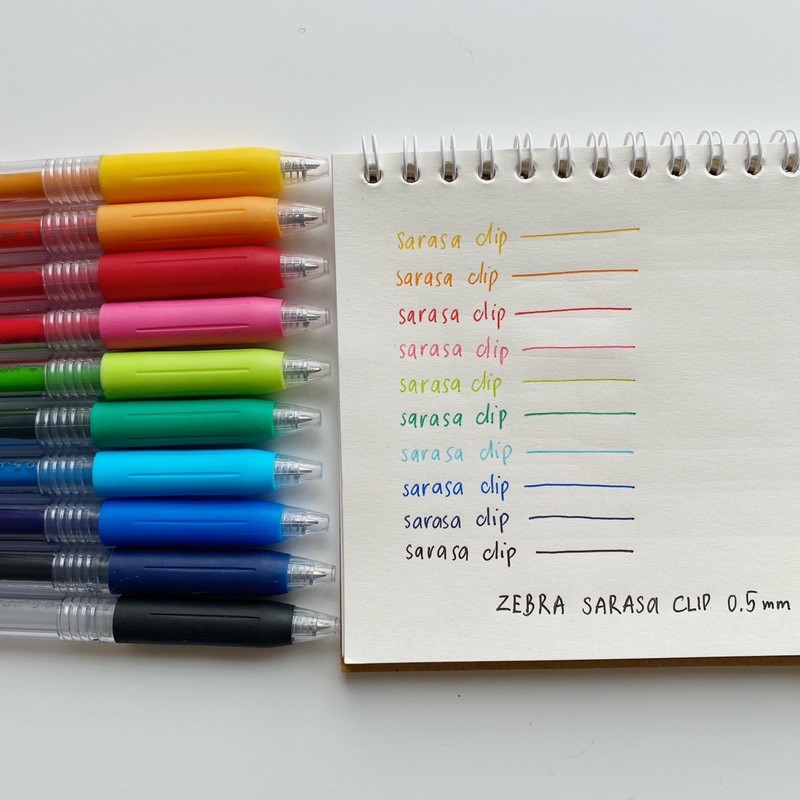 sarasa clip
sarasa clip
sarasa clip
sarasa clip
sarasa clip
sarasa clip
sarasa clip
sarasa clip
sarasa clip
sarasa clip
ZEBRA SARASA CLIP 0.5mm